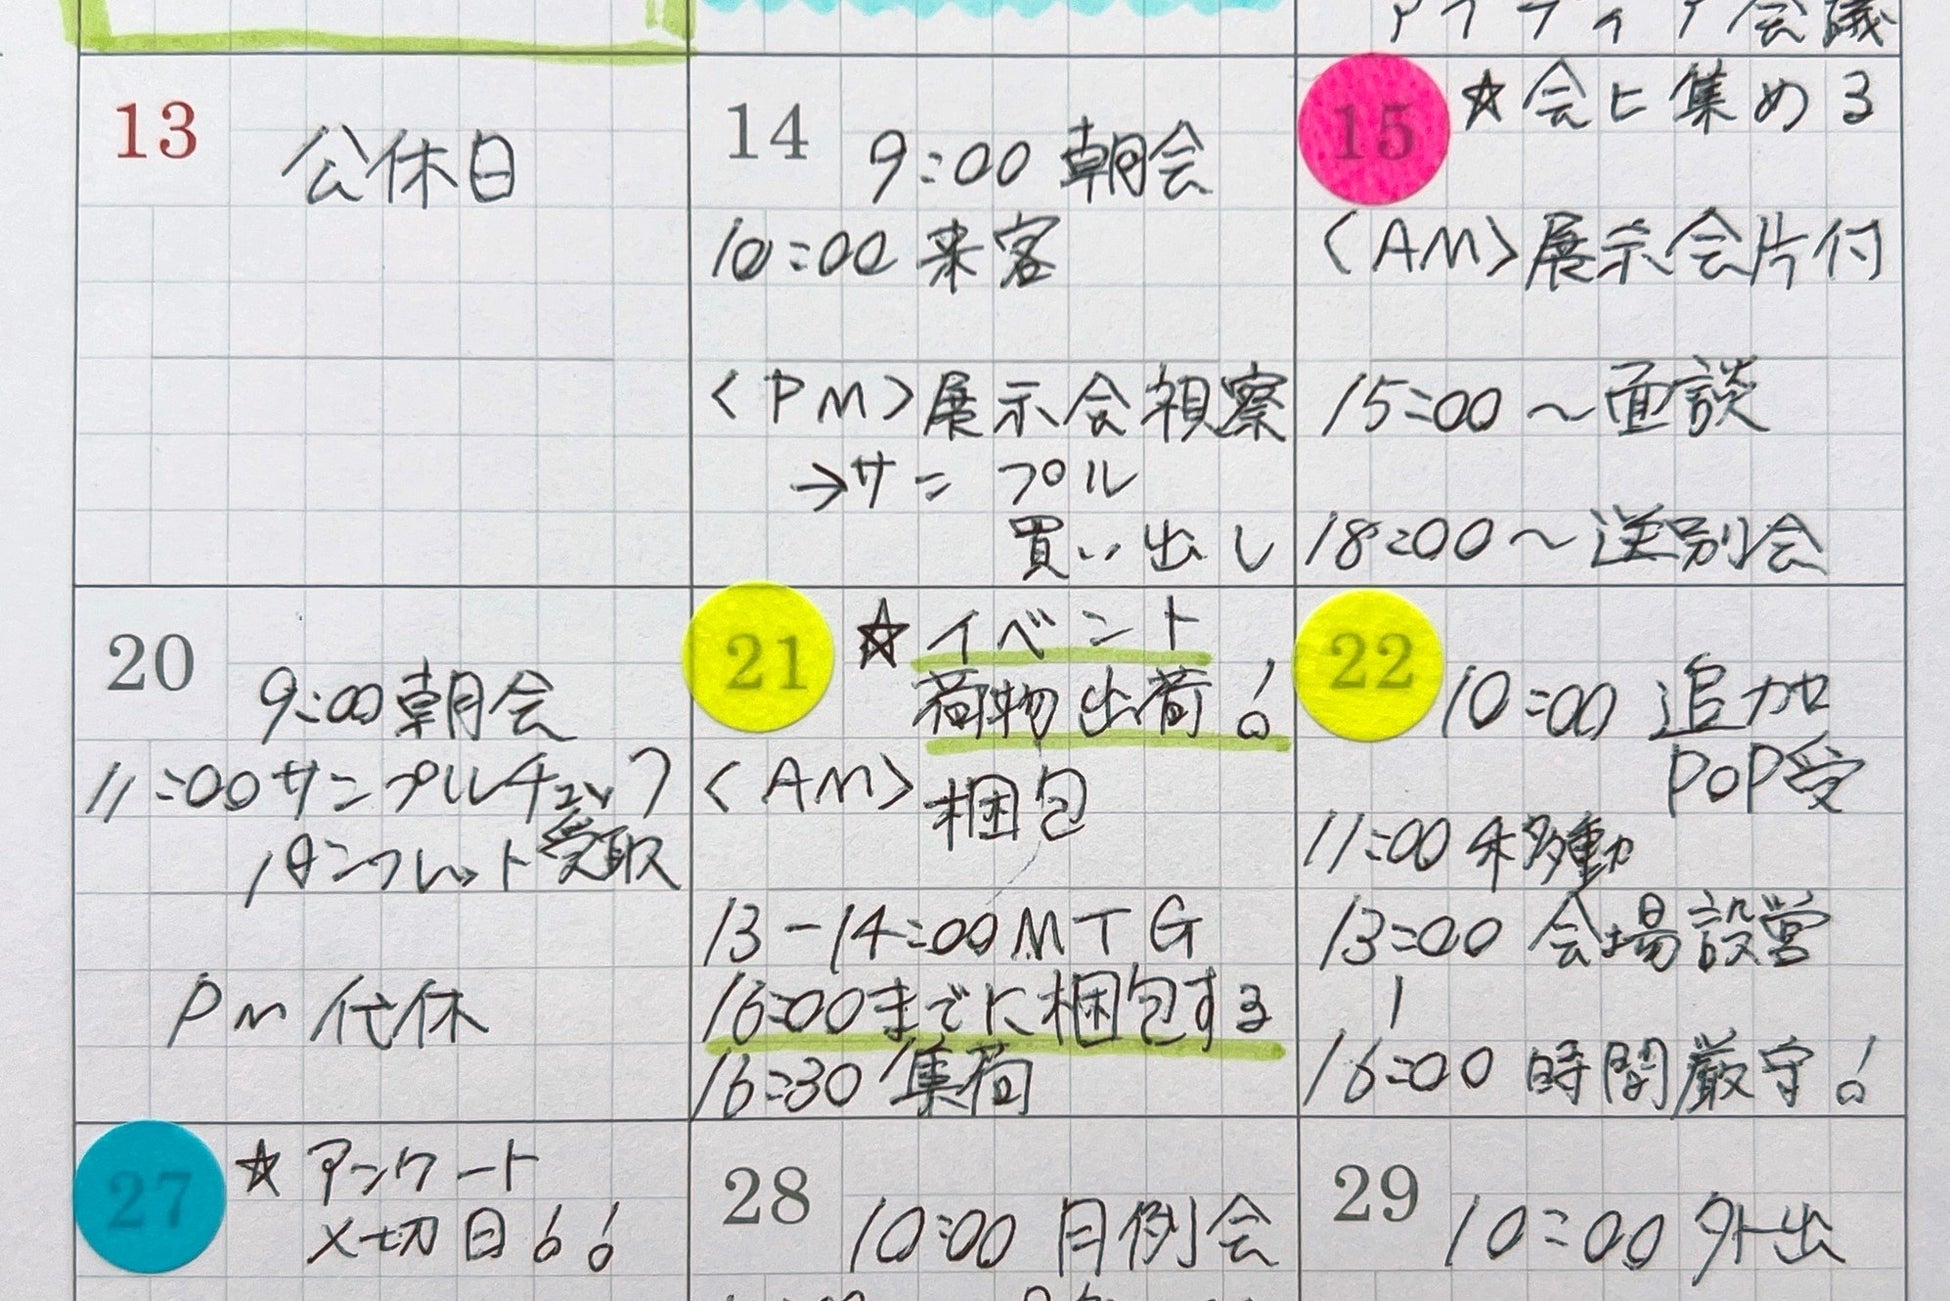 アイディア会議
13
公休日
14
9:00 朝会
10:00 来客
<PM>展示会視察
→サンプル
買い出し
15
☆会ヒ集める
<AM>展示会片付
15:00～面談
18:00～送別会
20
9:00朝会
11:00サンプルチェック
パンフレット受取
PM 代休
21
☆イベント
荷物出荷!
<AM>
梱包
13-14:00MTG
16:00までに梱包する
16:30集荷
22
10:00 追加
POP受
11:00 移動
13:00 会場設営
|
16:00 時間厳守!
27
☆アンケート
〆切日!!
28
10:00 月例会
29
10:00 外出